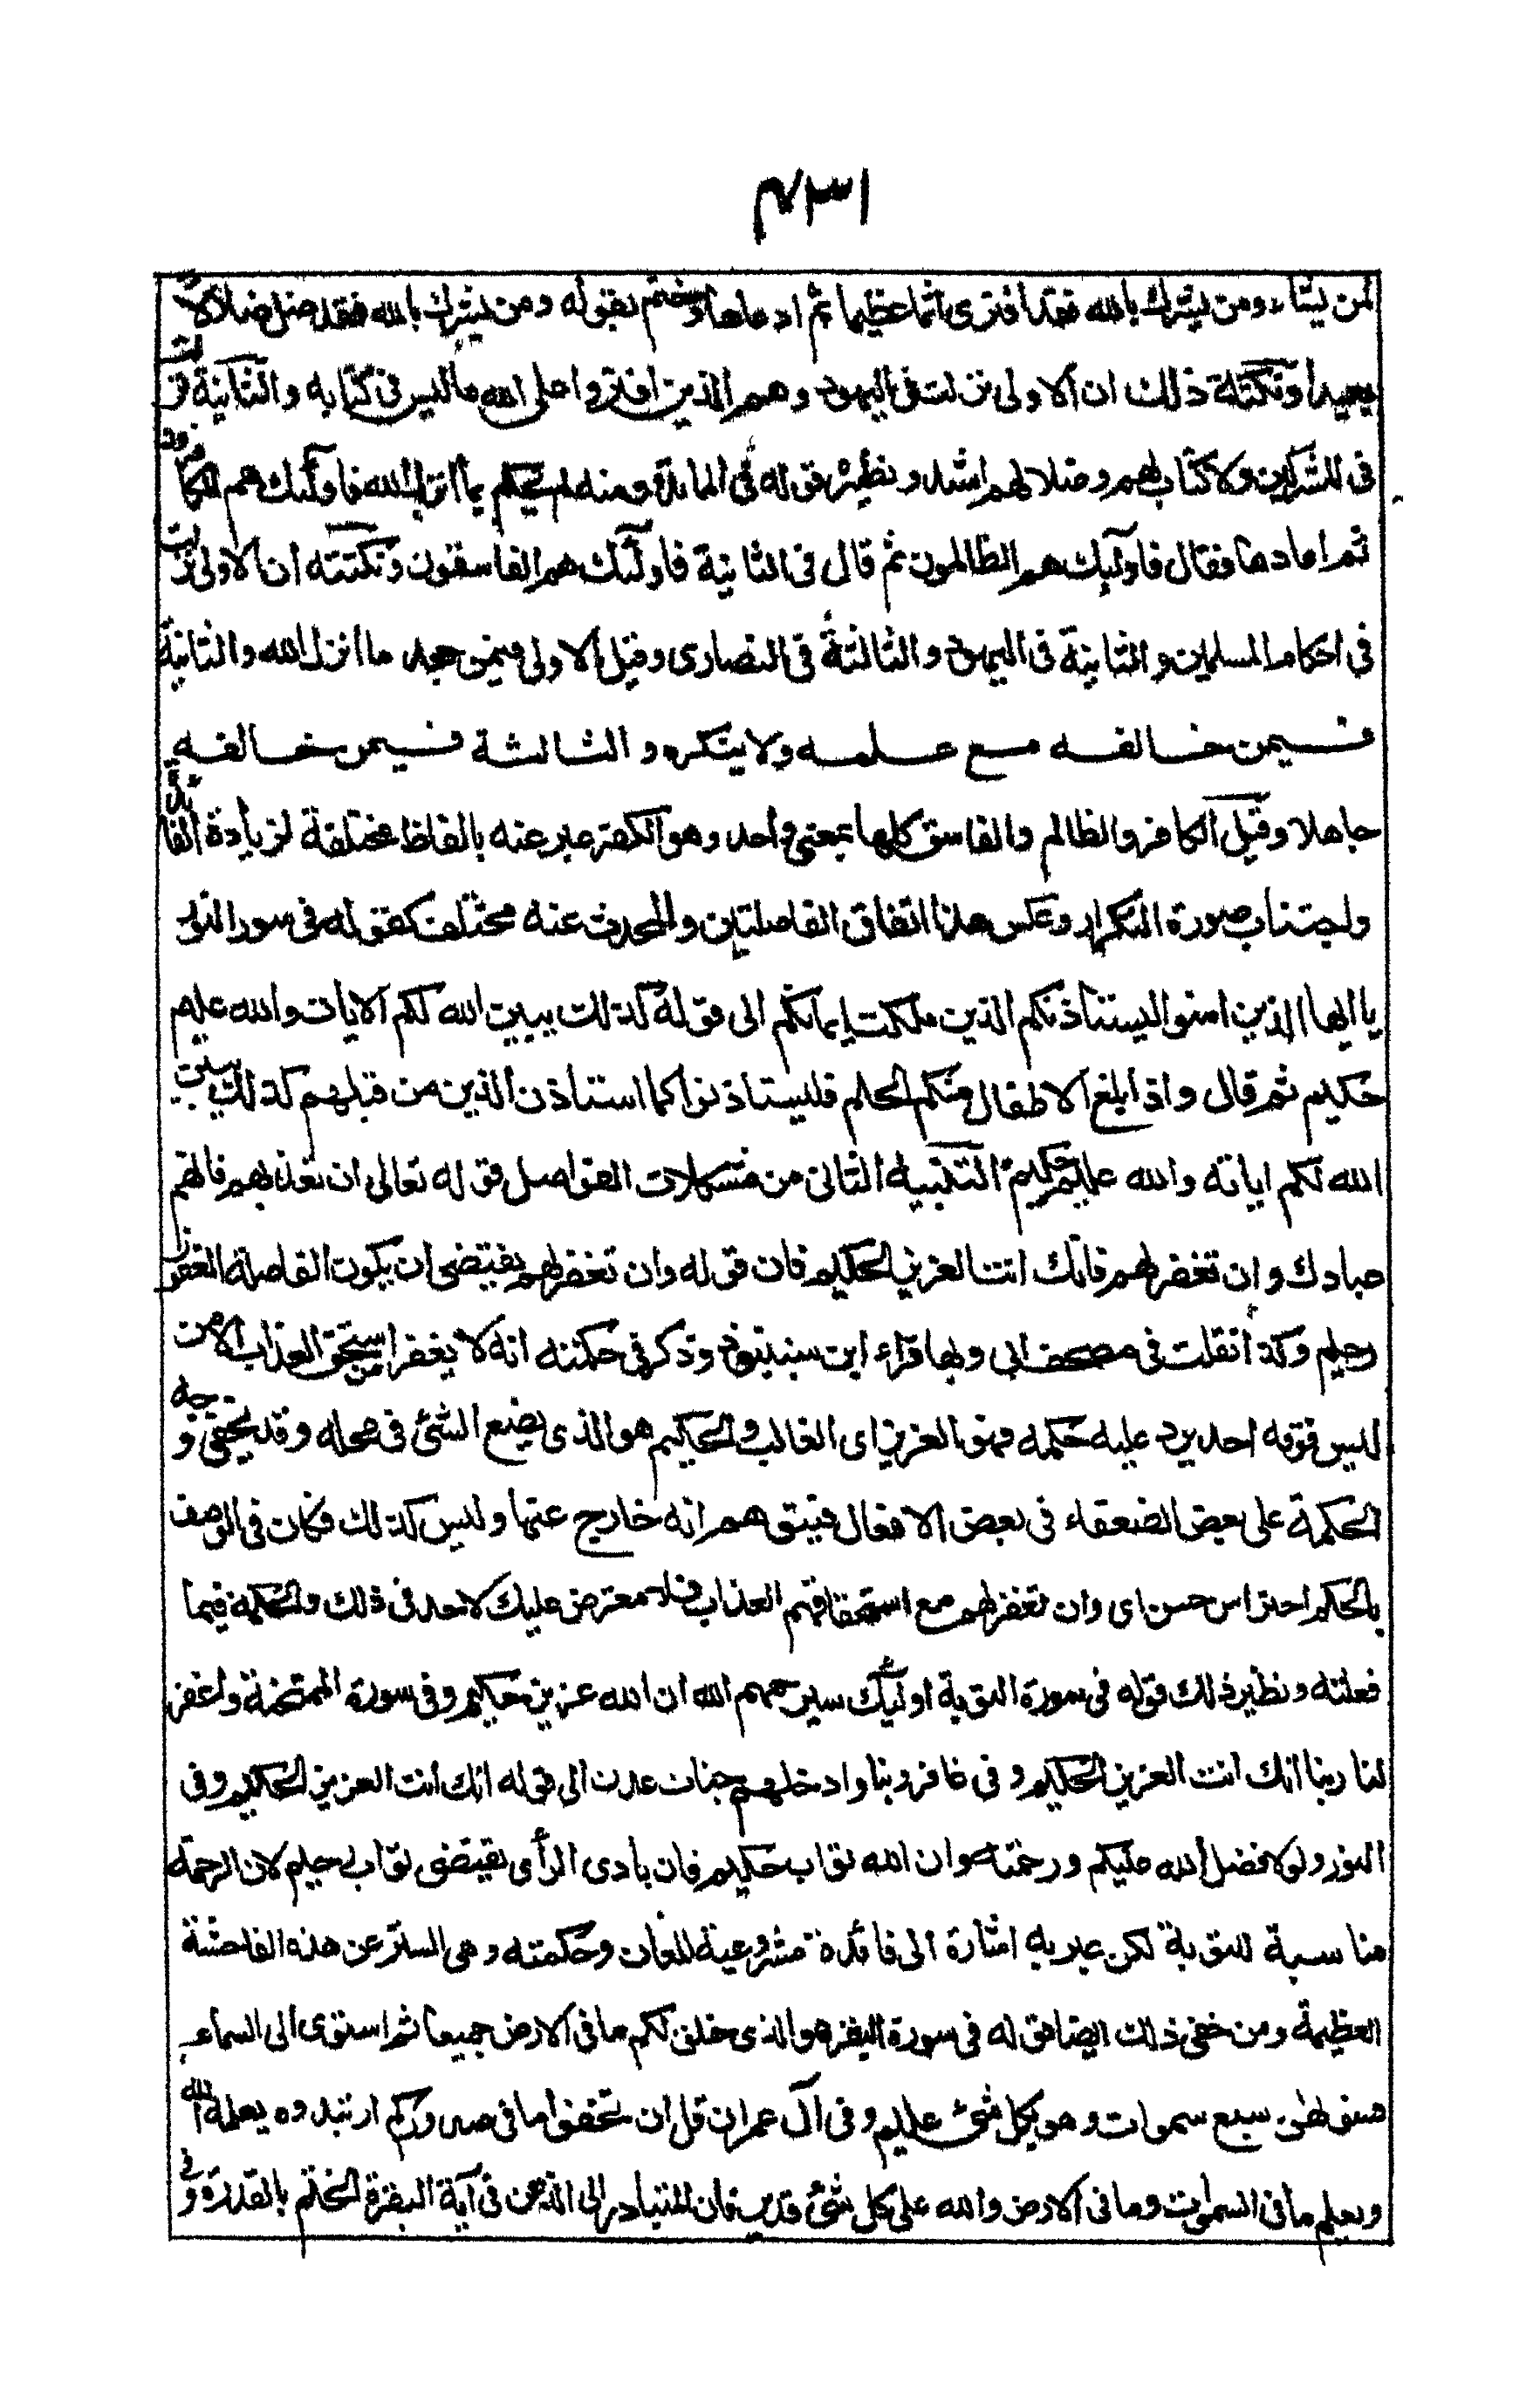 ٧٣١
لمن يشاء ومن يشرك بالله فقد افترى اثما عظيما ثم اعادها وختم بقوله ومن يشرك بالله فقد ضل ضلالا
بعيدا ونكتة ذلك ان الاولى نزلت فى اليهود وهم الذين افتروا على الله ما ليس فى كتابه والثانية نزلت
فى المشركين ولا كتاب لهم وضلالهم اشد ونظيره قوله فى المائدة ومن لم يحكم بما انزل الله فاولئك هم الكافرون
ثم اعادها فقال فاولئك هم الظالمون ثم قال فى الثانية فاولئك هم الفاسقون ونكتته ان الاولى نزلت
فى احكام المسلمين والثانية فى اليهود والثالثة فى النصارى وقيل الاولى فيمن جحد ما انزل الله والثانية
فيمن خالفه مع علمه ولا ينكره والثالثة فيمن خالفه
جاهلا وقيل الكافر والظالم والفاسق كلها بمعنى واحد وهو الكفر عبر عنه بالفاظ مختلفة لزيادة الفائدة
واجتناب صورة التكرار وعكس هذا اتفاق الفاصلتين والمحدث عنه مختلف كقوله فى سورة النور
يا ايها الذين امنوا ليستاذنكم الذين ملكت ايمانكم الى قوله كذلك يبين الله لكم الايات والله عليم
حكيم ثم قال واذا بلغ الاطفال منكم الحلم فليستاذنوا كما استاذن الذين من قبلهم كذلك يبين
الله لكم اياته والله عليم حكيم التنبيه الثانى من مشكلات الفواصل قوله تعالى ان تعذبهم فانهم
عبادك وان تغفر لهم فانك انت العزيز الحكيم فان قوله وان تغفر لهم يقتضى ان يكون الفاصلة الغفور
رحيم وكذا نقلت فى مصحف ابى وبها قراء ابن شنبوذ وذكر فى حكمته انه لا يغفر لمن استحق العذاب الا من
ليس فوقه احد يرد عليه حكمه فهو العزيز اى الغالب والحكيم هو الذى يضع الشئ فى محله وقد يخفى وجه
الحكمة على بعض الضعفاء فى بعض الافعال فيتوهم انه خارج عنها وليس كذلك فكان فى الوصف
بالحكيم احتراس حسن اى وان تغفر لهم مع استحقاقهم العذاب فلا معترض عليك لاحد فى ذلك والحكمة فيما
فعلته ونظير ذلك قوله فى سورة التوبة اولئك سيرحمهم الله ان الله عزيز حكيم وفى سورة الممتحنة واغفر
لنا ربنا انك انت العزيز الحكيم وفى غافر ربنا وادخلهم جنات عدن الى قوله انك انت العزيز الحكيم وفى
النور ولولا فضل الله عليكم ورحمته وان الله تواب حكيم فان بادى الرأى يقتضى تواب رحيم لان الرحمة
مناسبة للتوبة لكن عبر به اشارة الى فائدة مشروعية اللعان وحكمته وهى الستر عن هذه الفاحشة
العظيمة ومن خفى ذلك ايضا قوله فى سورة البقرة هو الذى خلق لكم ما فى الارض جميعا ثم استوى الى السماء
فسوهن سبع سموات وهو بكل شئ عليم وفى آل عمران قل ان تخفوا ما فى صدوركم او تبدوه يعلمه الله
ويعلم ما فى السموات وما فى الارض والله على كل شئ قدير فان المتبادر الى الذهن فى آية البقرة الختم بالقدرة وفى